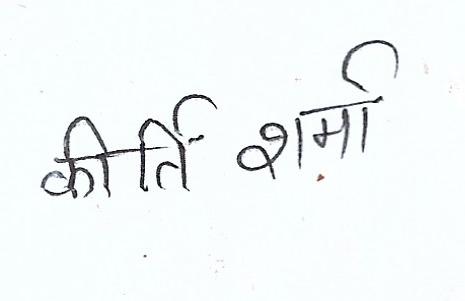 कीर्ति शर्मा